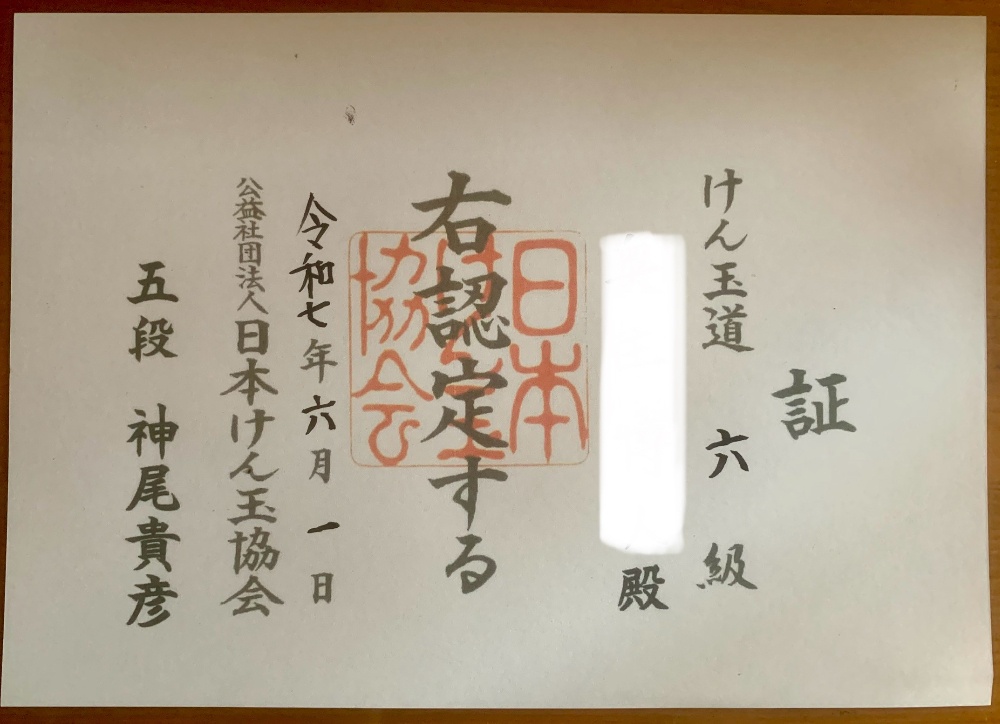 証
けん玉道 六 級
殿
右認定する
日本けん玉協会
令和七年六月一日
公益社団法人日本けん玉協会
五段 神尾貴彦